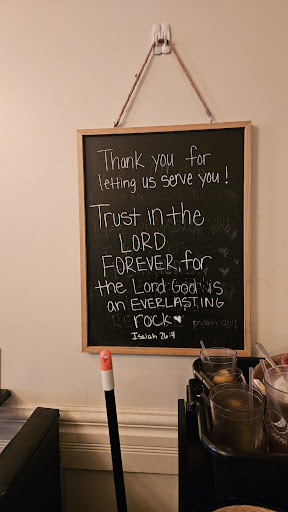 Thank you for
letting us serve you!
Trust in the
LORD
FOREVER, for
the Lord God is
an EVERLASTING
rock ♥
Isaiah 26:4